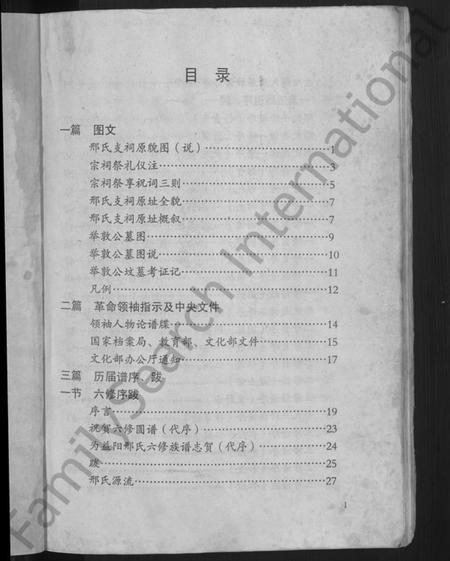 目录
一篇 图文
邢氏支祠原貌图(说)……1
宗祠祭礼仪注……3
宗祠祭享祝词三则……5
邢氏支祠原址全貌……7
邢氏支祠原址概叙……7
华敦公墓图……9
华敦公墓图说……10
华敦公坟墓考证记……11
凡例……12
二篇 革命领袖指示及中央文件
领袖人物论谱牒……14
国家档案局、教育部、文化部文件……15
文化部办公厅通知……17
三篇 历届谱序、跋
一节 六修序跋
序言……19
祝贺六修圆谱(代序)……23
为益阳邢氏六修族谱志贺(代序)……24
跋……25
邢氏源流……27
1
FamilySearch International